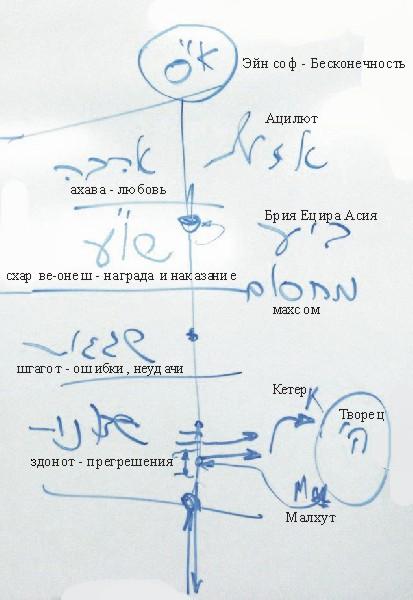 א"ס
Эйн соф - Бесконечность
Ацилют
אהבה
ахава - любовь
Брия Ецира Асия
שו"ע
בי"ע
схар ве-онеш - награда и наказание
מחסום
махсом
שגגות
шгагот - ошибки, неудачи
Кетер
К
Творец
זדונות
здонот - прегрешения
Мал
Малхут